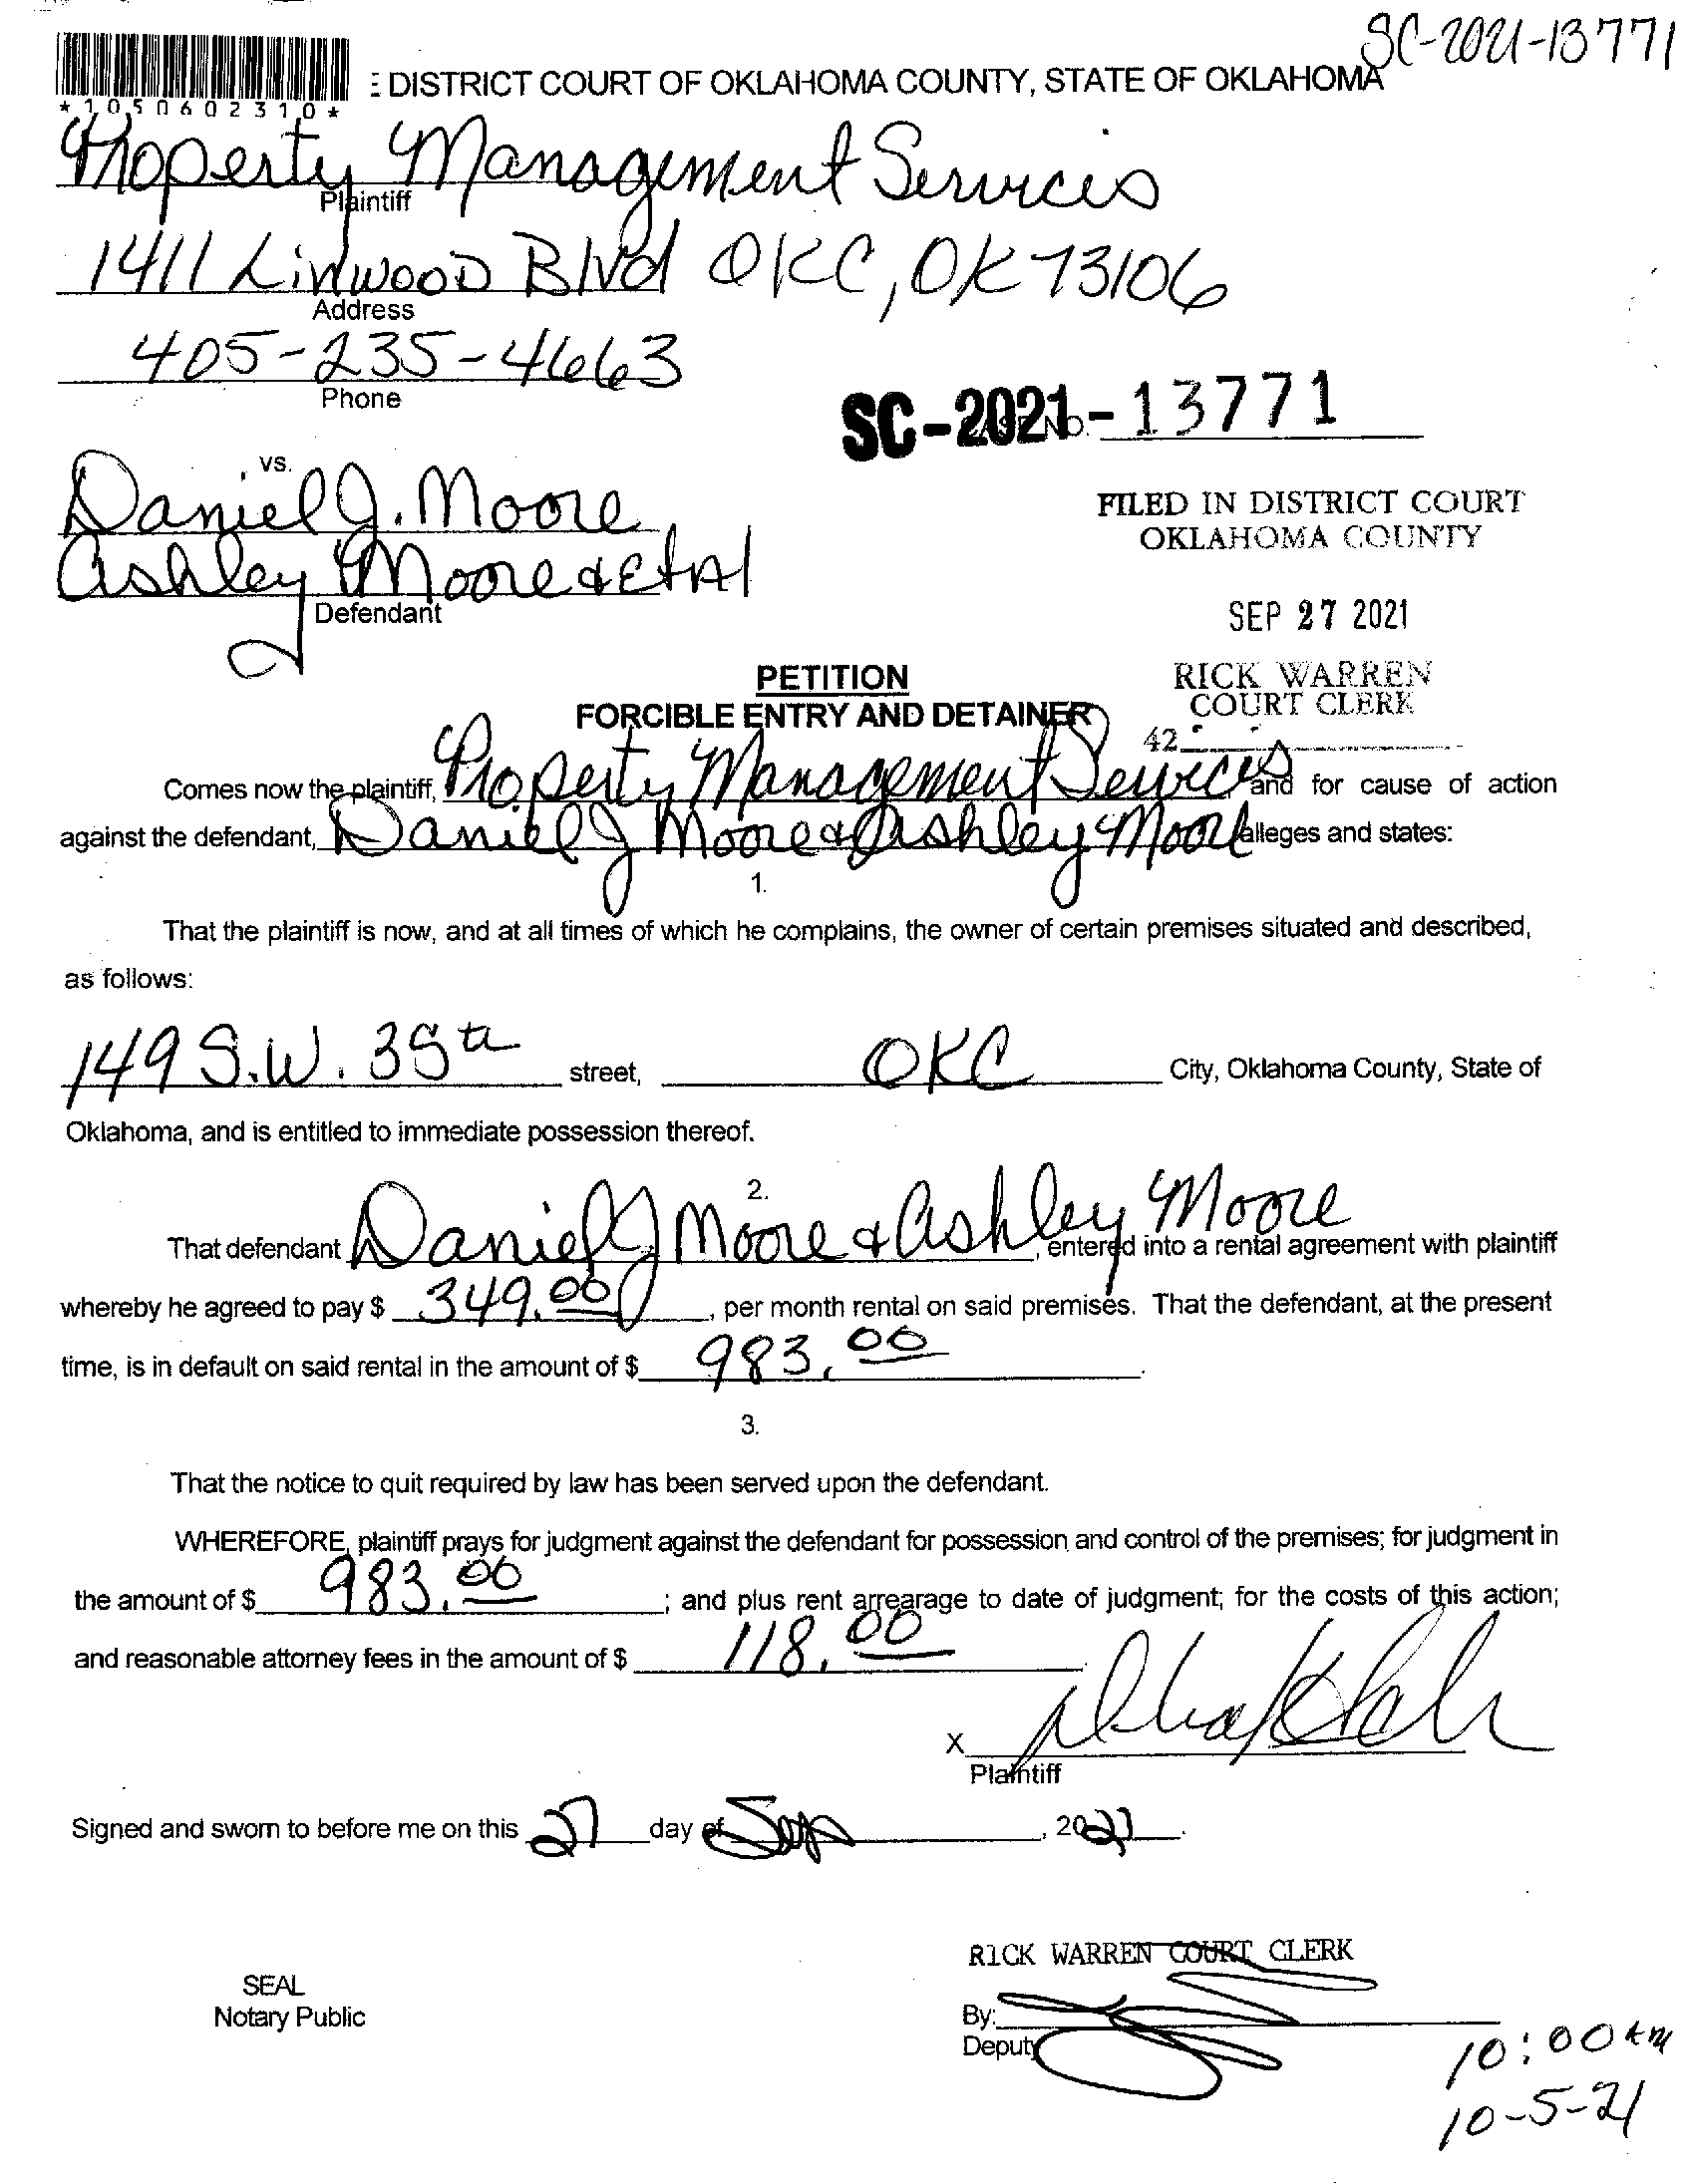 SC-2021-13771
E DISTRICT COURT OF OKLAHOMA COUNTY, STATE OF OKLAHOMA
*1050602310*
Property Management Services
Plaintiff
1411 Linwood Blvd OKC, OK 73106
Address
405-235-4663
Phone
SC-2021-13771
vs.
Daniel J. Moore
Ashley Moore & Et Al
Defendant
FILED IN DISTRICT COURT
OKLAHOMA COUNTY
SEP 27 2021
RICK WARREN
COURT CLERK
42
PETITION
FORCIBLE ENTRY AND DETAINER
Comes now the plaintiff, Property Management Services and for cause of action
against the defendant, Daniel J Moore & Ashley Moore alleges and states:
1.
That the plaintiff is now, and at all times of which he complains, the owner of certain premises situated and described,
as follows:
149 S.W. 38th street, OKC City, Oklahoma County, State of
Oklahoma, and is entitled to immediate possession thereof.
2.
That defendant Daniel J Moore & Ashley Moore, entered into a rental agreement with plaintiff
whereby he agreed to pay $ 349.00, per month rental on said premises. That the defendant, at the present
time, is in default on said rental in the amount of $ 983.00.
3.
That the notice to quit required by law has been served upon the defendant.
WHEREFORE, plaintiff prays for judgment against the defendant for possession and control of the premises; for judgment in
the amount of $ 983.00; and plus rent arrearage to date of judgment; for the costs of this action;
and reasonable attorney fees in the amount of $ 118.00
X
Plaintiff
Signed and sworn to before me on this 27 day of Sep, 2021.
RICK WARREN COURT CLERK
SEAL
Notary Public
By:
Deputy
10:00 AM
10-5-21